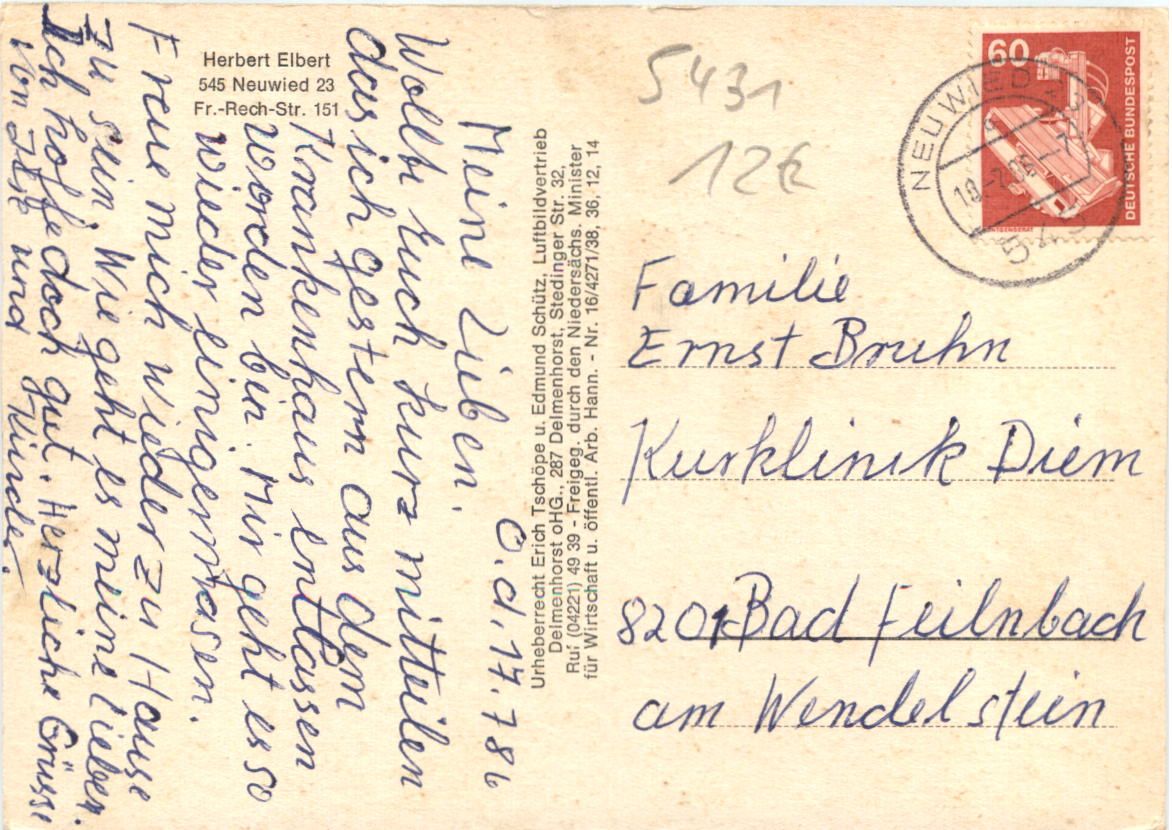 Herbert Elbert
545 Neuwied 23
Fr.-Rech-Str. 151
O.d. 17.7 86
Meine Lieben.
Wollte Euch kurz mitteilen
das ich gestern aus dem
Krankenhaus entlassen
worden bin. Mir geht es so
wieder einigermasen.
Freue mich wieder zu Hause
zu sein. Wie geht es meine Lieben.
Ich hoffe doch gut. Herzliche Grüsse
von und Kinder.
Urheberrecht Erich Tschöpe u. Edmund Schütz, Luftbildvertrieb
Delmenhorst oHG., 287 Delmenhorst, Stedinger Str. 32,
Ruf (04221) 49 39 - Freigeg. durch den Niedersächs. Minister
für Wirtschaft u. öffentl. Arb. Hann. - Nr. 16/4271/38, 36, 12, 14
5431
12€
60
DEUTSCHE BUNDESPOST
NEUWIED
Familie
Ernst Bruhn
Kurklinik Diem
8201 Bad Feilnbach
am Wendelstein